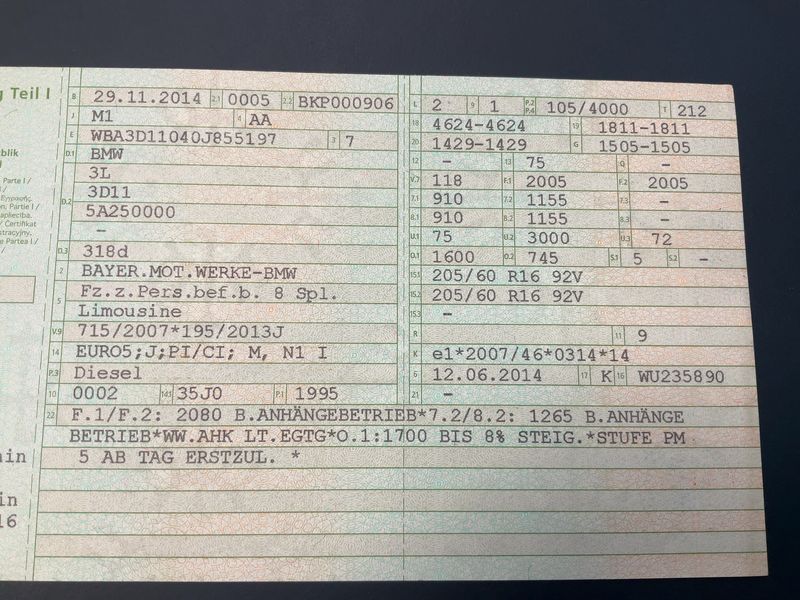 g Teil I
B 29.11.2014 2.1 0005 2.2 BKP000906
J M1 4 AA
E WBA3D11040J855197 3 7
D.1 BMW
3L
D.2 3D11
5A250000
–
D.3 318d
2 BAYER.MOT.WERKE-BMW
5 Fz.z.Pers.bef.b. 8 Spl.
Limousine
V.9 715/2007*195/2013J
14 EURO5;J;PI/CI; M, N1 I
P.3 Diesel
10 0002 14.1 35J0 P.1 1995
L 2 9 1 P.2 P.4 105/4000 T 212
18 4624-4624 19 1811-1811
20 1429-1429 G 1505-1505
12 – 13 75 Q –
V.7 118 F.1 2005 F.2 2005
7.1 910 7.2 1155 7.3 –
8.1 910 8.2 1155 8.3 –
U.1 75 U.2 3000 U.3 72
O.1 1600 O.2 745 S.1 5 S.2 –
15.1 205/60 R16 92V
15.2 205/60 R16 92V
15.3 –
R 11 9
K e1*2007/46*0314*14
6 12.06.2014 17 K 16 WU235890
21 –
22 F.1/F.2: 2080 B.ANHÄNGEBETRIEB*7.2/8.2: 1265 B.ANHÄNGE
BETRIEB*WW.AHK LT.EGTG*O.1:1700 BIS 8% STEIG.*STUFE PM
5 AB TAG ERSTZUL. *
blik
Parte I /
Εγγραφής.
Partie I /
apliecība.
/ Certifikat
stracyjny.
Partea I /
in
in
16